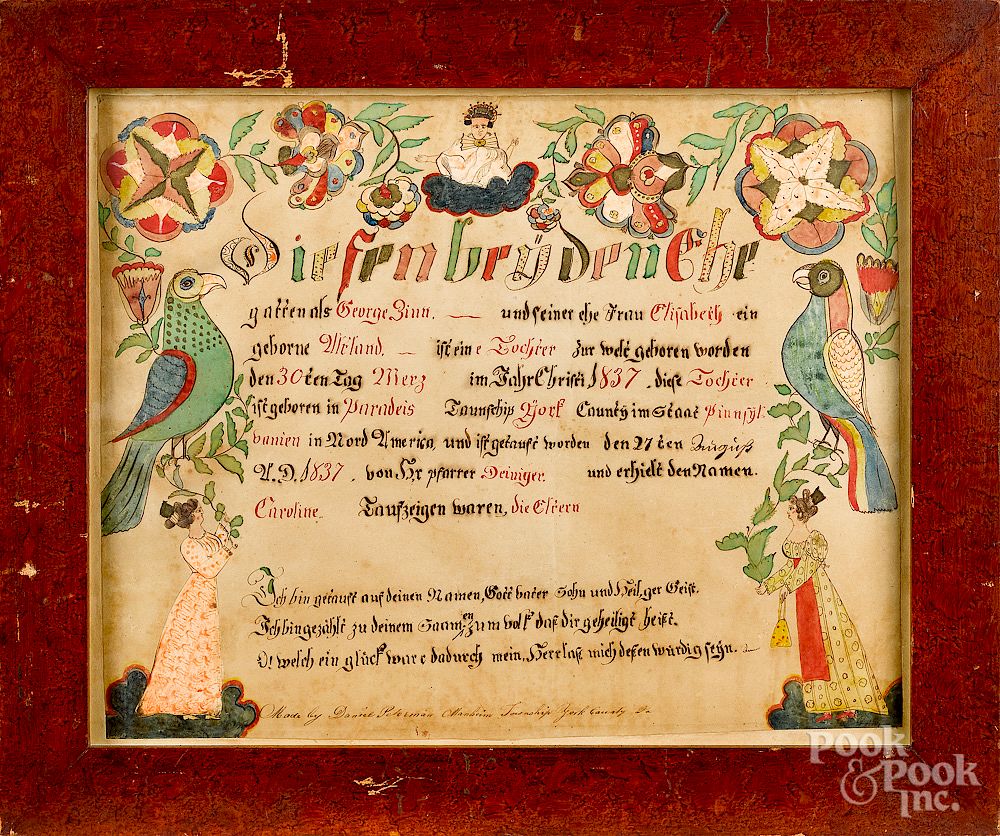 Diesen beÿden Ehe
gatten als George Zinn. — und seiner ehe Frau Elisabeth ein
geborne Weland. — ist eine Tochter zur welt geboren worden
den 30ten Tag Merz im Jahr Christi 1837. diese Tochter
ist geboren in Paradeis Taunschip York County im Staat Pinnsyl
vanien in Nord America, und ist getauft worden den 27ten August
A.D. 1837. von Hr pfarrer Deiniger. und erhielt den Namen.
Caroline. Taufzeigen waren, die Eltern
Ich bin getauft auf deinen Namen, Gott vater Sohn und Heil,ger Geist.
Ich bin gezählt zu deinem Saamen, zum volk das dir geheiligt heist.
O! welch ein glück ward dadurch mein, Herr lass mich dessen würdig seÿn.
Made by Daniel Peterman Manheim Township York County Pa
Pook
& Pook
Inc.